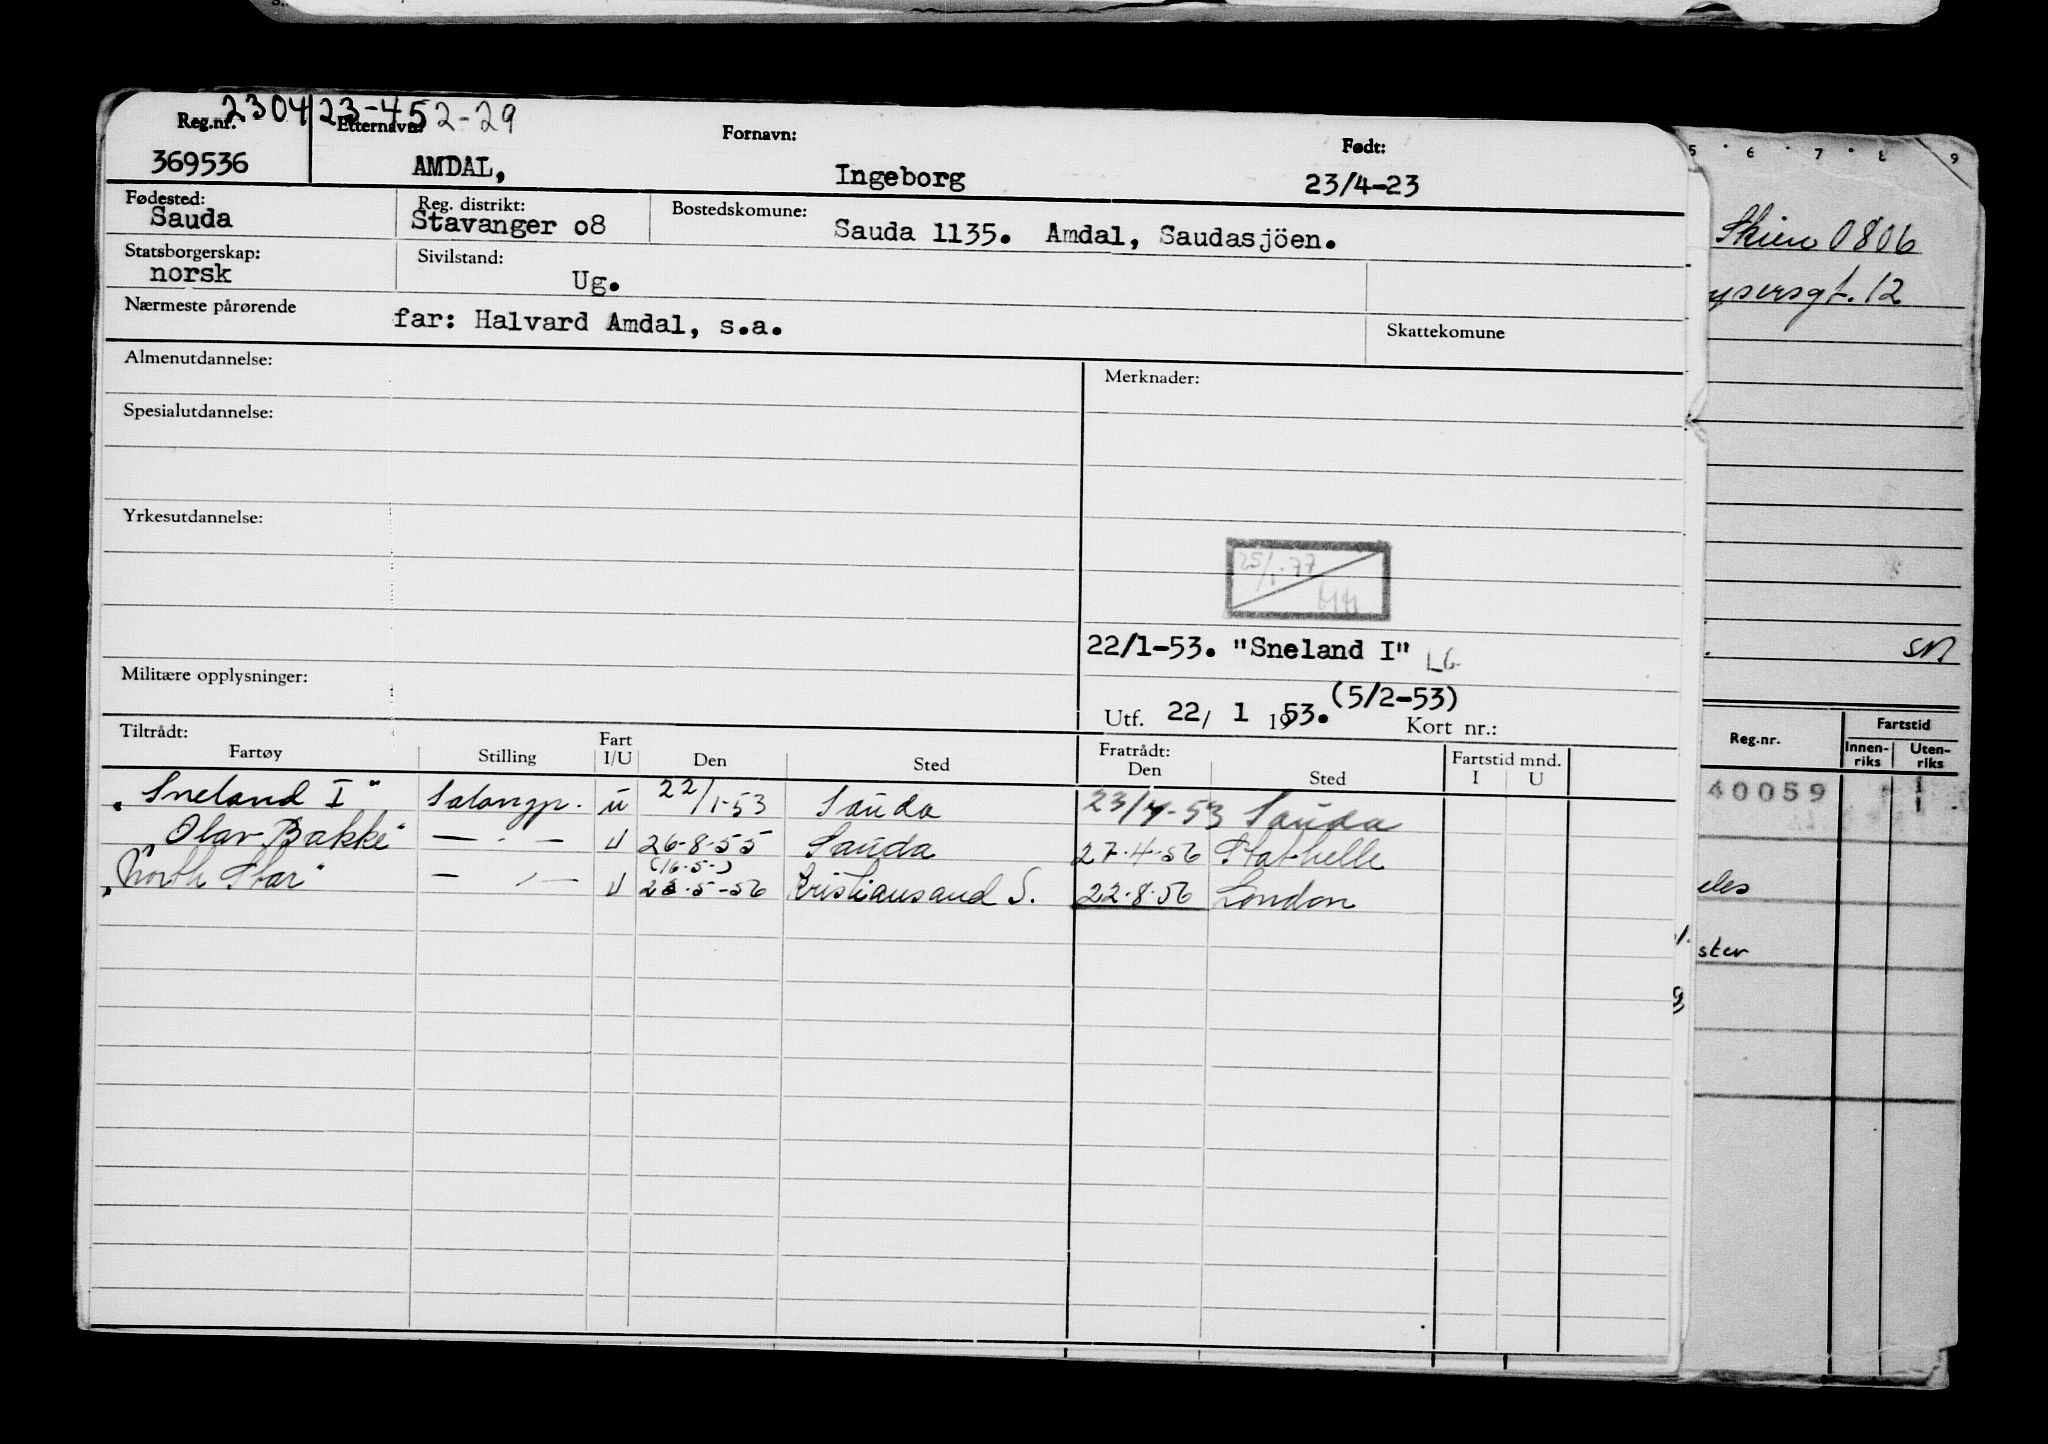 230423-452-29
Reg.nr. Etternavn: Fornavn: Født:
369536 AMDAL, Ingeborg 23/4-23
Fødested: Reg. distrikt: Bostedskomune:
Sauda Stavanger o8 Sauda 1135. Amdal, Saudasjöen.
Statsborgerskap: Sivilstand:
norsk Ug.
Nærmeste pårørende far: Halvard Amdal, s.a. Skattekomune
Almenutdannelse: Merknader:
Spesialutdannelse:
Yrkesutdannelse:
25/1-77
HH
22/1-53. "Sneland I" LG
Militære opplysninger:
(5/2-53)
Utf. 22/ 1 1953. Kort nr.:
Tiltrådt: Fratrådt:
Fartøy Stilling Fart I/U Den Sted Den Sted Fartstid mnd. I U
"Sneland I" Salongp. u 22/1-53 Sauda 23/4-53 Sauda
"Olav Bakke" — · — U 26-8-55 Sauda 27-4-56 Stathelle
(16-5-)
"North Star" — · — U 23-5-56 Kristiansand S. 22-8-56 London
5 6 7 8 9
Skien 0806
ysersgt. 12
SN
Reg.nr. Fartstid
Innen-riks Uten-riks
40059
eles
ster